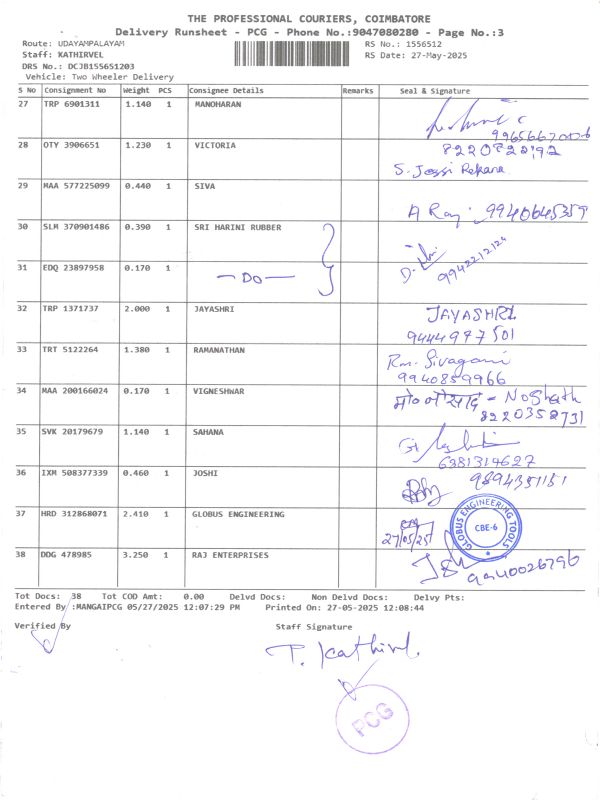 THE PROFESSIONAL COURIERS, COIMBATORE
Delivery Runsheet - PCG - Phone No.:9047080280 - Page No.:3
Route: UDAYAMPALAYAM RS No.: 1556512
Staff: KATHIRVEL RS Date: 27-May-2025
DRS No.: DCJB155651203
Vehicle: Two Wheeler Delivery
S No Consignment No Weight PCS Consignee Details Remarks Seal & Signature
27 TRP 6901311 1.140 1 MANOHARAN
28 OTY 3906651 1.230 1 VICTORIA 8220822192
S. Jessi Rekana
29 MAA 577225099 0.440 1 SIVA
A Raj 9940645359
30 SLM 370901486 0.390 1 SRI HARINI RUBBER
9942212124
31 EDQ 23897958 0.170 1 — DO —
32 TRP 1371737 2.000 1 JAYASHRI JAYASHRI
9444977501
33 TRT 5122264 1.380 1 RAMANATHAN Rm. Sivagami
9940859966
34 MAA 200166024 0.170 1 VIGNESHWAR
8220358731
35 SVK 20179679 1.140 1 SAHANA
6381314627
36 IXM 508377339 0.460 1 JOSHI 9894351151
37 HRD 312868071 2.410 1 GLOBUS ENGINEERING
27/05/25
GLOBUS ENGINEERING TOOLS
CBE-6
38 DDG 478985 3.250 1 RAJ ENTERPRISES
9940026796
Tot Docs: 38 Tot COD Amt: 0.00 Delvd Docs: Non Delvd Docs: Delvy Pts:
Entered By :MANGAIPCG 05/27/2025 12:07:29 PM Printed On: 27-05-2025 12:08:44
Verified By Staff Signature
T. Kathirvel.
PCG